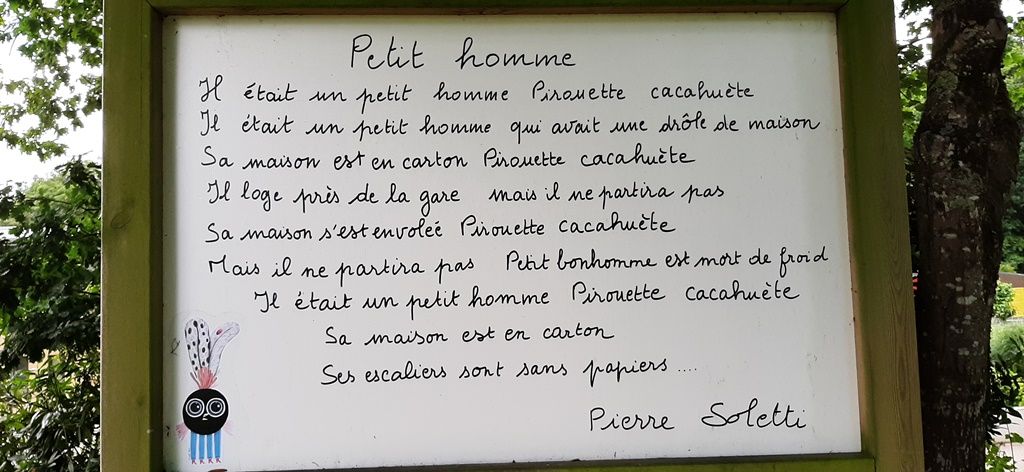 Petit homme
Il était un petit homme Pirouette cacahuète
Il était un petit homme qui avait une drôle de maison
Sa maison est en carton Pirouette cacahuète
Il loge près de la gare mais il ne partira pas
Sa maison s'est envolée Pirouette cacahuète
Mais il ne partira pas Petit bonhomme est mort de froid
Il était un petit homme Pirouette cacahuète
Sa maison est en carton
Ses escaliers sont sans papiers ....
Pierre Soletti